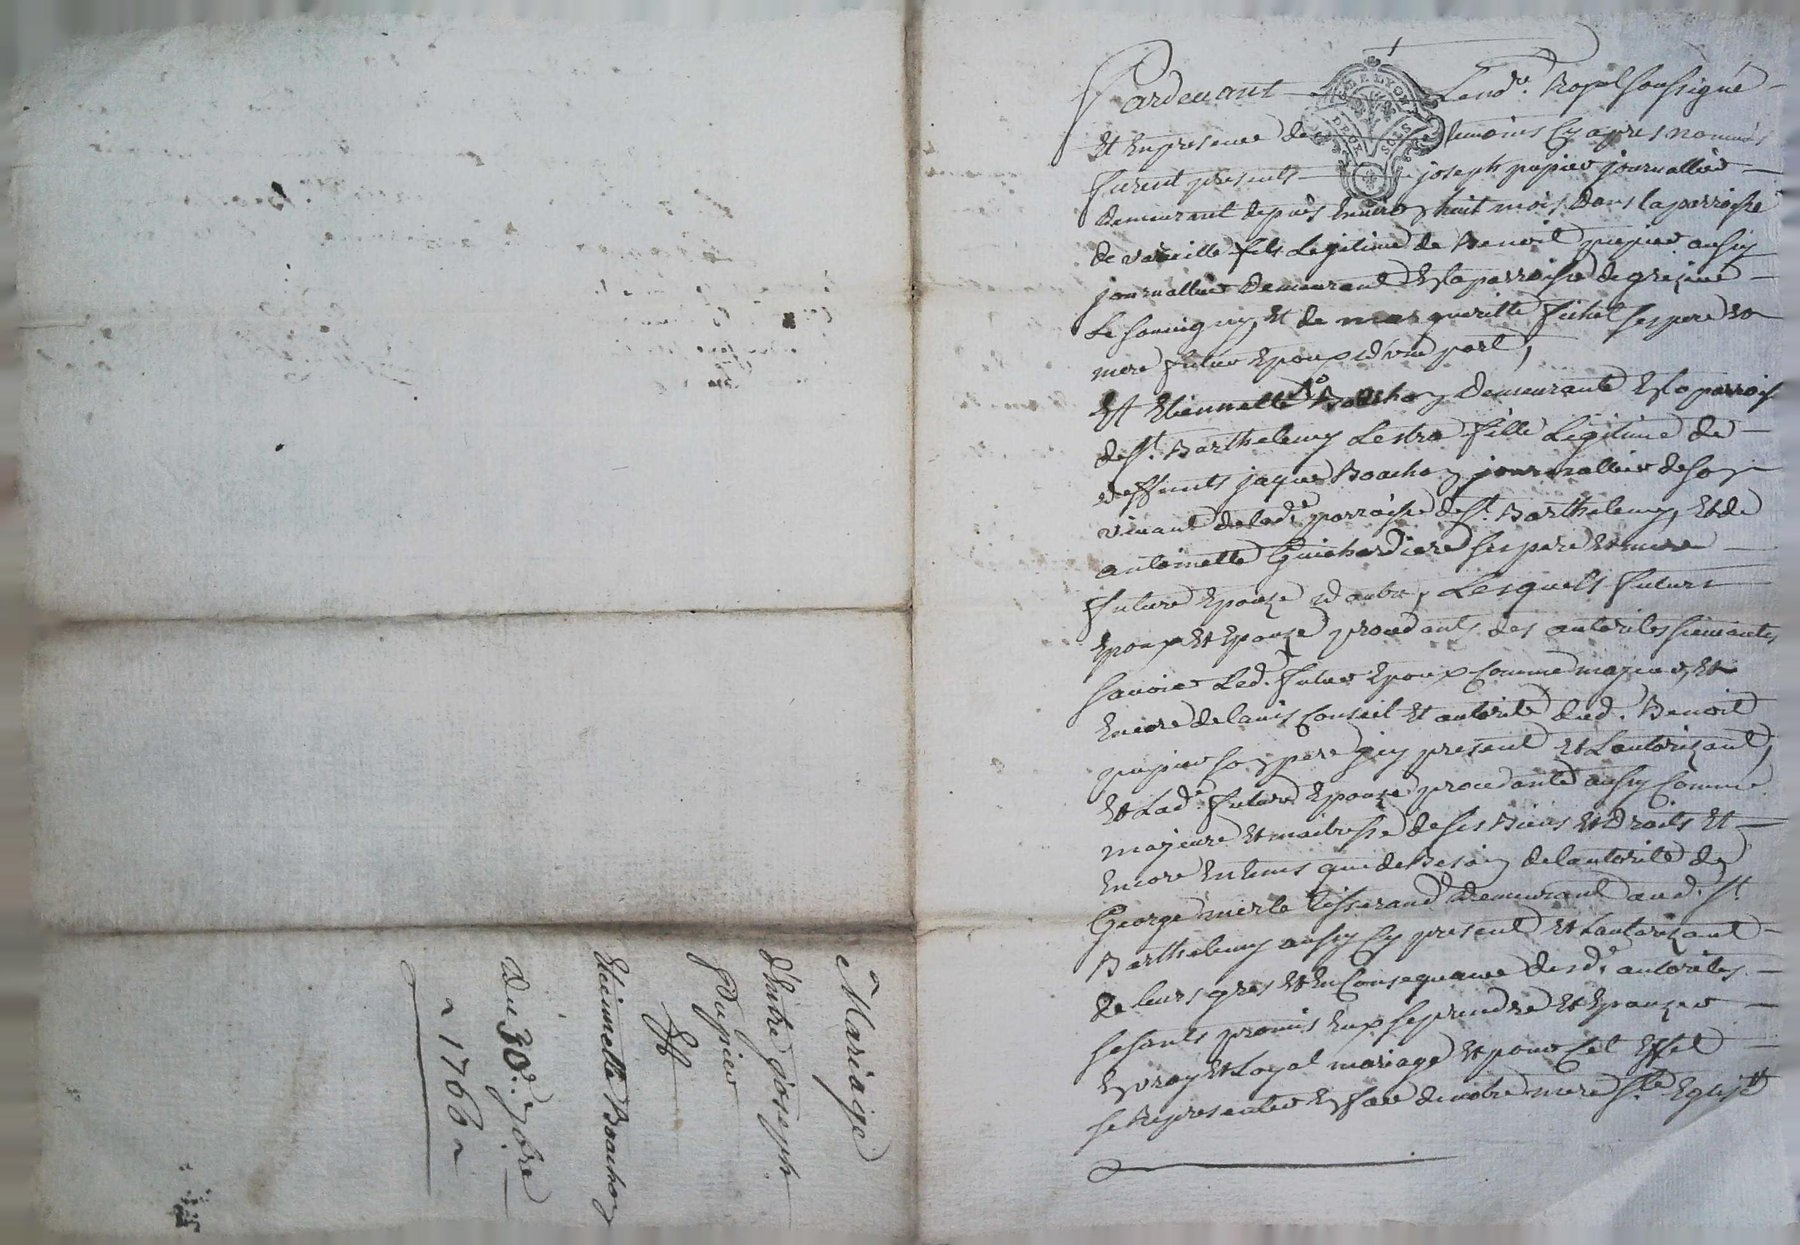 Mariage
d'Entre joseph
Pupier
Et
Etiennette Boachon
du 30e. 7bre
1760
GEN. DE LYON
DEUX SOLS
Pardevant Le nore. Royal soussigné
Et En presence des temoins Cy apres nommés
furent presents joseph pupier journallier
demeurant depuis Environ huit mois dans la parroisse
de valeille fils Legitime de Benoit pupier aussy
journallier demeurant En la parroisse de grezieu
Le fromental Et de margueritte fichet ses pere Et
mere futur Epoux d'une part,
Et Etiennette Boachon demeurante En la parroisse
de st. Barthelemy Lestra fille Legitime de
deffunts jaque Boachon journallier de son
vivant de lade. parroisse de st. Barthelemy, Et de
antoinette Guichardiere ses pere Et mere
future Epouze d'autre, Lesquels futurs
Epoux Et Epouze procedants des autorites suivantes
savoir Led. futur Epoux Comme majeur, Et
Encore de lavis Conseil Et autorité dud. Benoit
pupier son pere Icy present Et Lautorizant,
Et Lade. future Epouze procedante aussy Comme
majeure Et maitresse de ses Biens Et droits Et
Encore En tems que de Besoin de lautorité de
George merle tisserand demeurant aud. st
Barthelemy aussy Cy present Et Lautorizant
de leurs gres Et En Consequance desde. autorites
se sont promis Eux se prendre Et Epouzer
En vray Et Loyal mariage Et pour Cet Effet
se Representer En face de notre mere ste Eglise